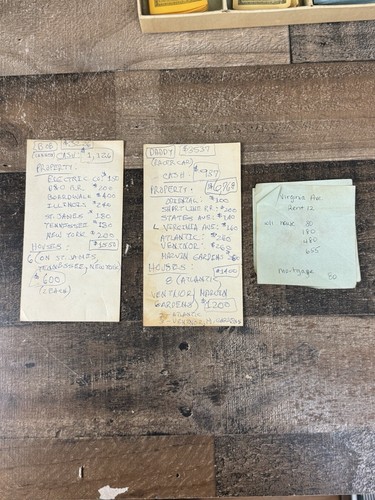 BOB $3226
CASH: $1,226
PROPERTY:
ELECTRIC CO $150
B&O R.R. $200
BOARDWALK $400
ILLINOIS $240
ST. JAMES $180
TENNESSEE $180
NEW YORK $200
HOUSES:
6 (ON ST. JAMES,
TENNESSEE, NEW YORK)
$600
(2 EACH)
DADDY $3537
(RACE CAR)
CASH: $987
PROPERTY:
ORIENTAL: $100
SHORT LINE RR: $200
STATES AVE: $140
VIRGINIA AVE: $160
ATLANTIC: $260
VENTNOR: $260
MARVIN GARDENS $280
HOUSES:
8 (ATLANTIC,
VENTNOR, MARVIN
GARDENS) $1200
ATLANTIC
VENTNOR, M. GARDENS
Virginia Av.
Rent 12
180
480
655
mortgage 80